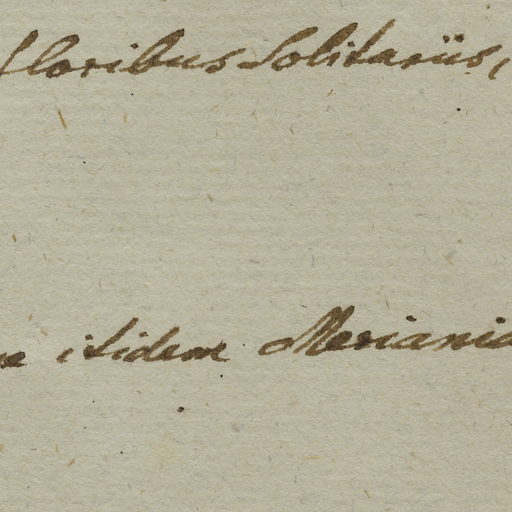 floribus Solitariis,
itidem Meriania